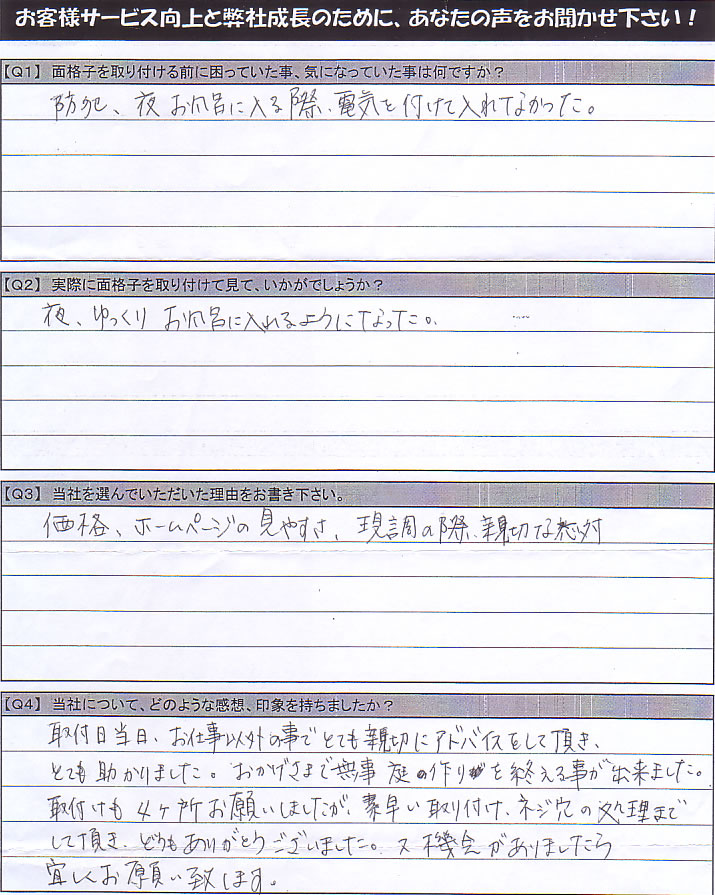 お客様サービス向上と弊社成長のために、あなたの声をお聞かせ下さい！
【Q1】 面格子を取り付ける前に困っていた事、気になっていた事は何ですか？
防犯、夜 お風呂に入る際、電気を付けて入れなかった。
【Q2】 実際に面格子を取り付けて見て、いかがでしょうか？
夜、ゆっくり お風呂に入れるようになった。
【Q3】 当社を選んでいただいた理由をお書き下さい。
価格、ホームページの見やすさ、現調の際、親切な応対
【Q4】 当社について、どのような感想、印象を持ちましたか？
取付日当日、お仕事以外の事でとても親切にアドバイスをして頂き、
とても助かりました。おかげさまで無事 庭の作りを終える事が出来ました。
取付けも 4ヶ所お願いしましたが、素早い取り付け、ネジ穴の処理まで
して頂き、どうもありがとうございました。又機会がありましたら
宜しくお願い致します。